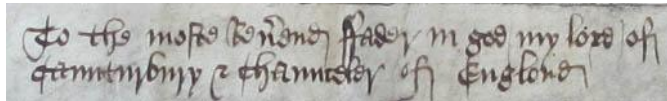 To the moste Reu̅end ffader in god my lord of
Caunturbury & Chaunceler of Englond